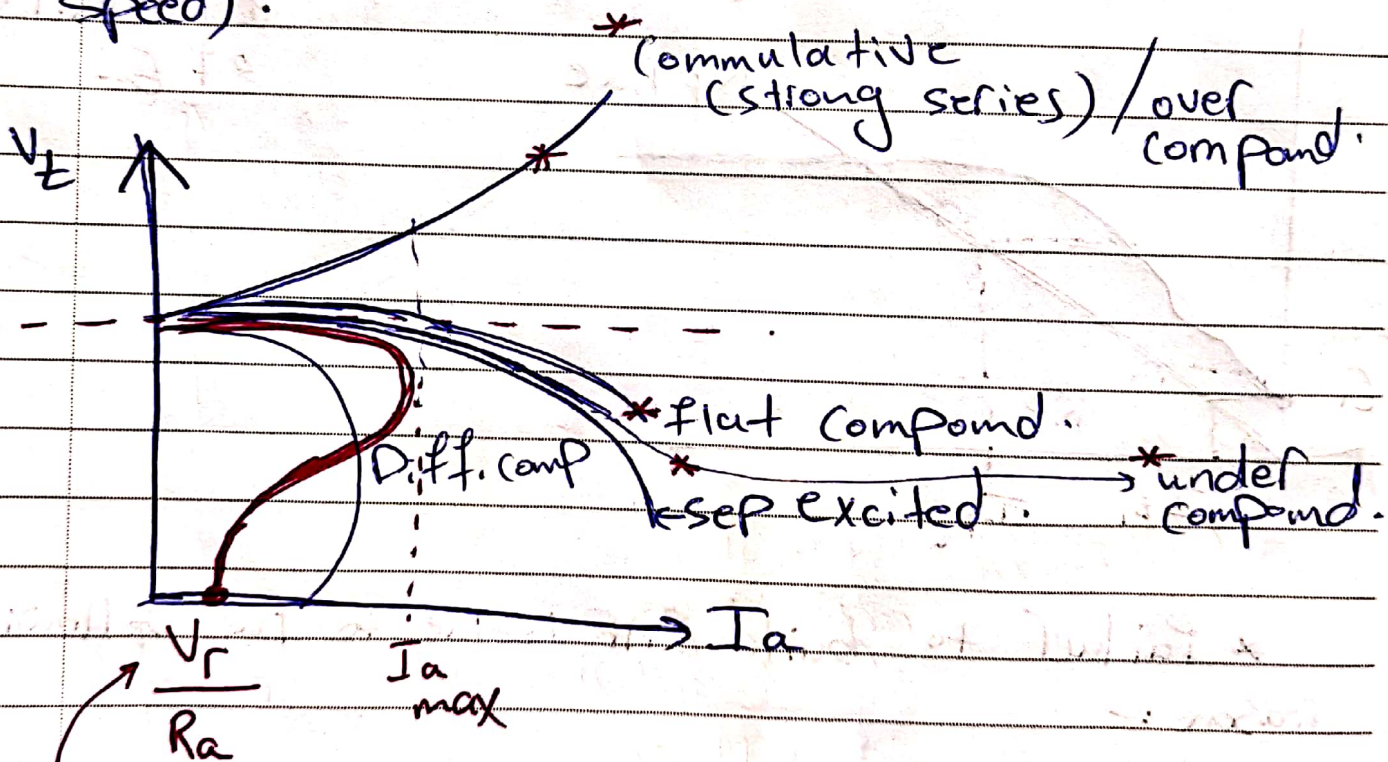 speed).
Commulative
(strong series) / over
compound.
Vt
flat compound.
Diff. comp
under
compound.
sep excited.
Ia
Vr
Ra
Ia
max